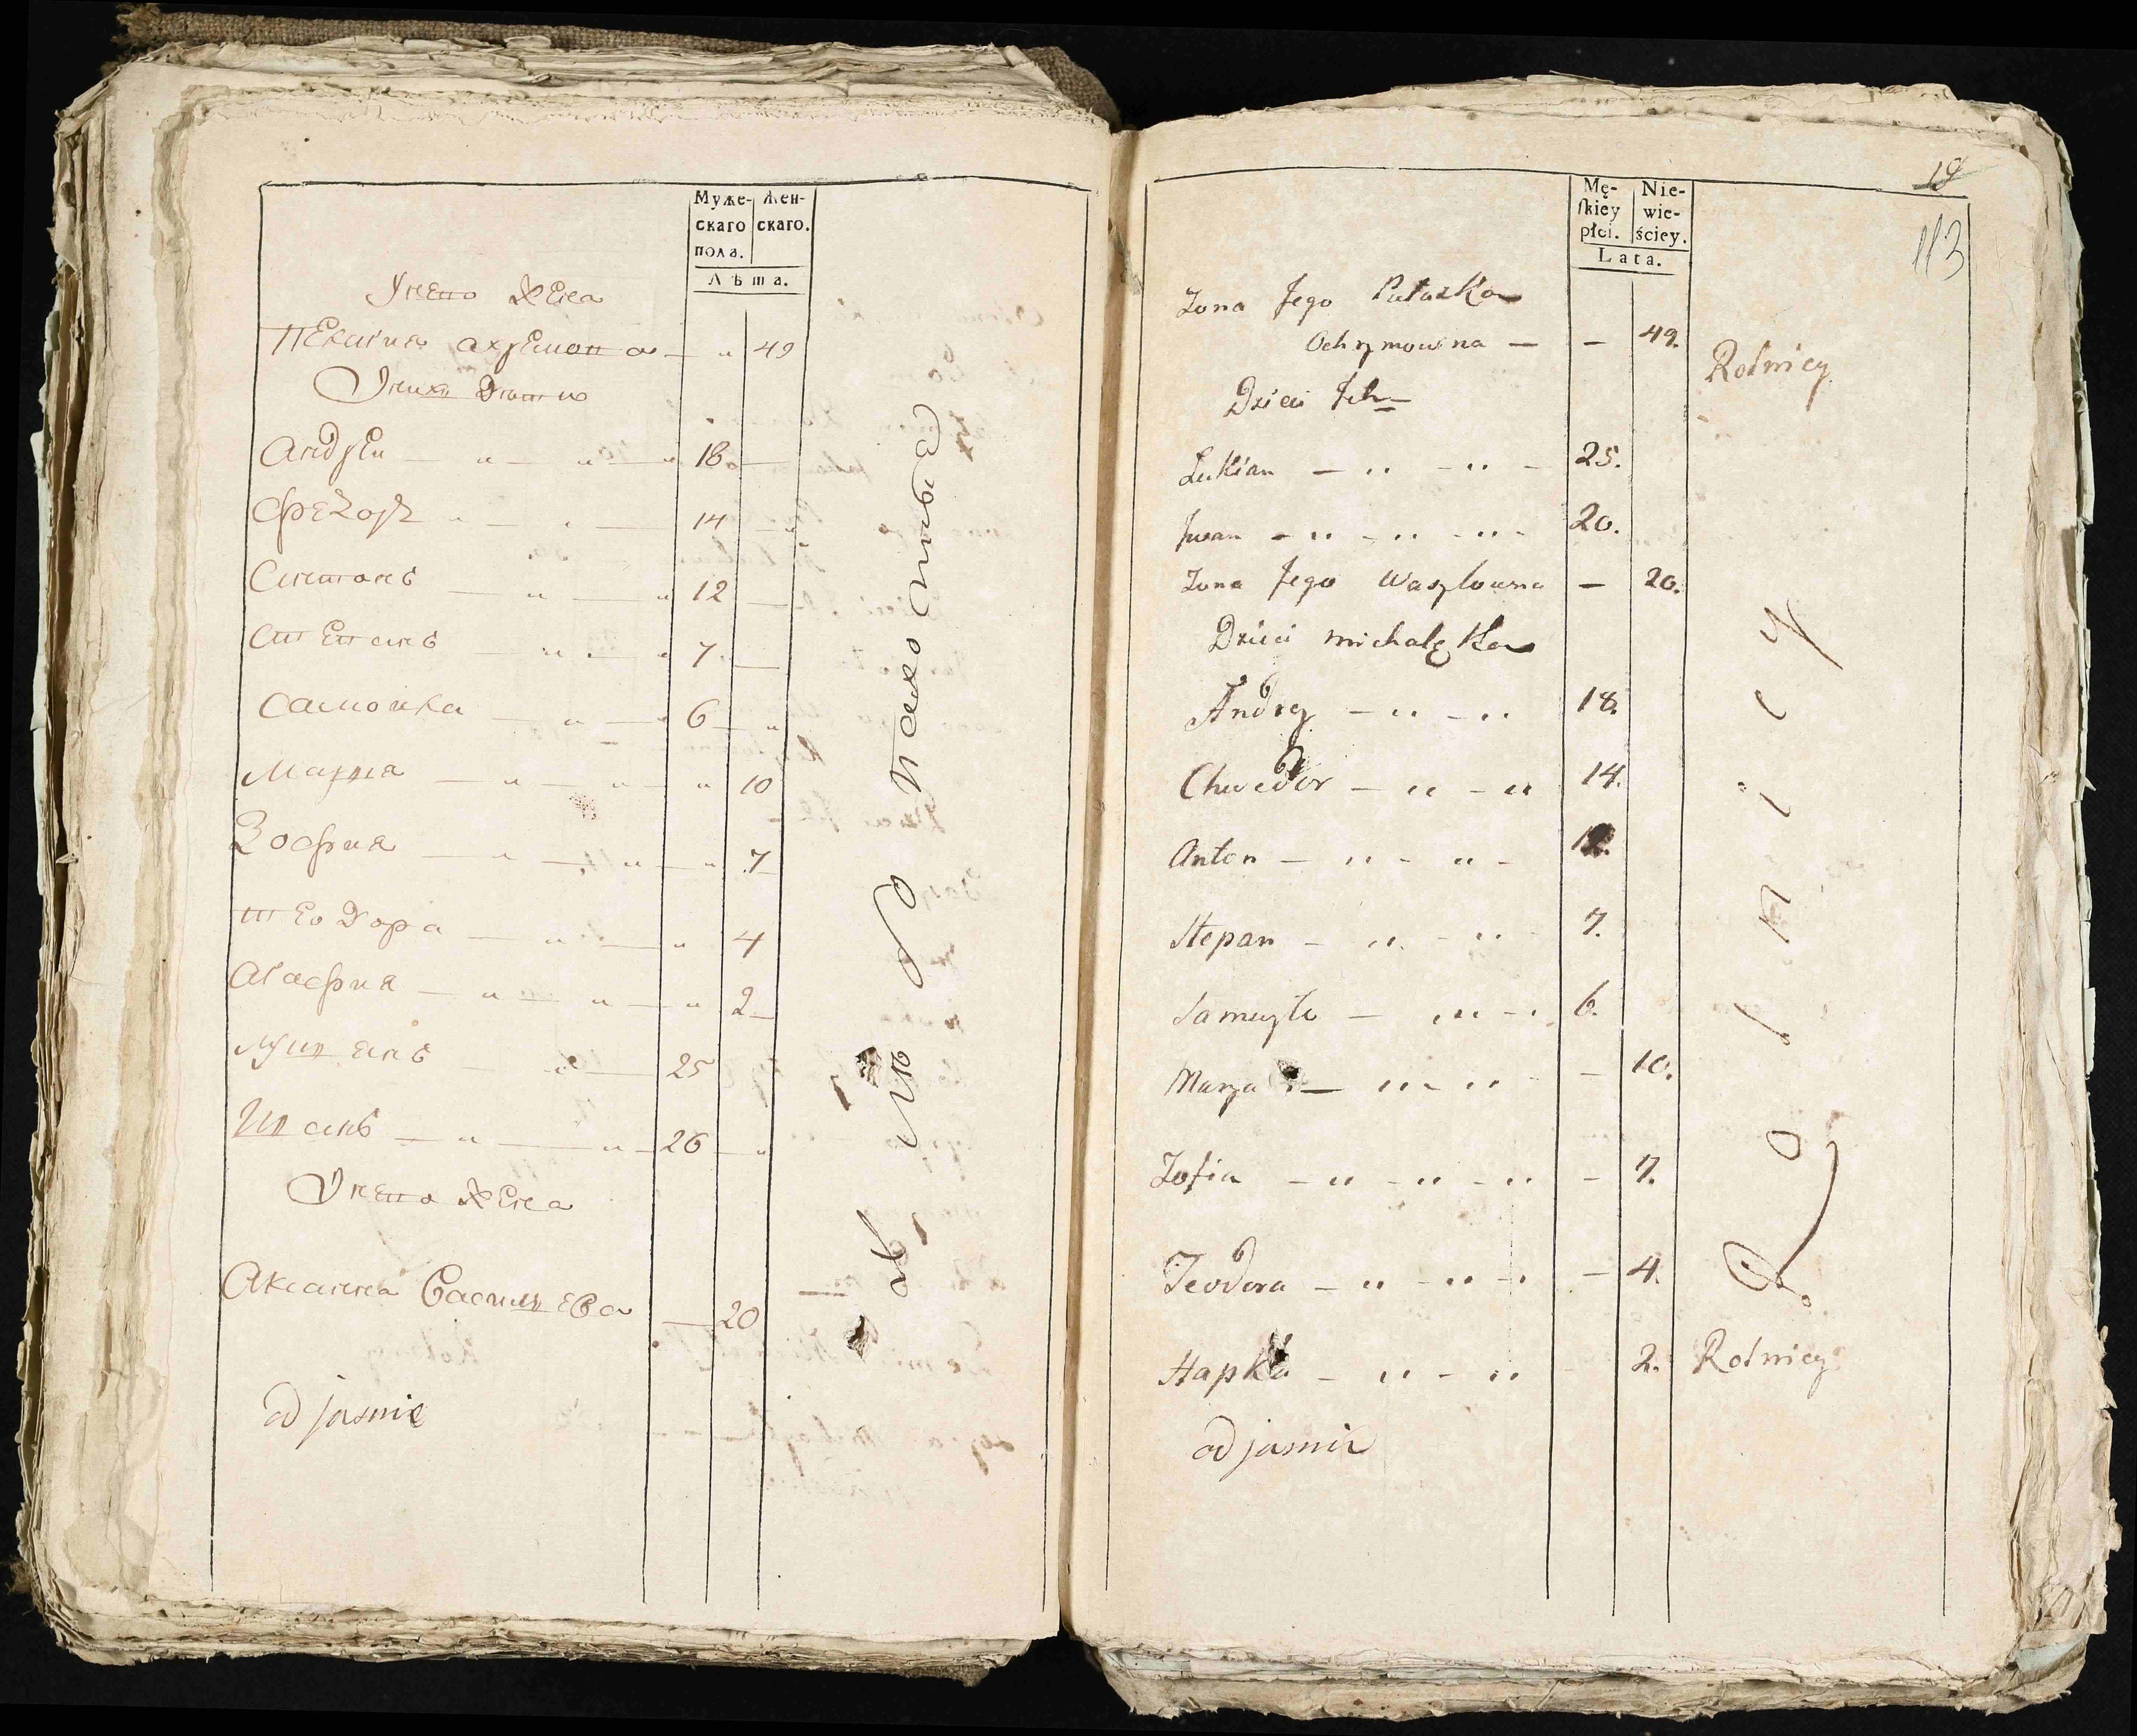 Муже-
скаго
пола.
Жен-
скаго.
Лѣта.
У него Жена
Пелагия 49
У них Дѣти
Андреи 18
Федоръ 14
Антонъ 12
Степанъ 7
Самойла 6
Мария 10
Зофия 7
Теодора 4
Агафия 2
Лукиянъ 25
Иванъ 26
У него Жена
Аксанна Василъева 20
od jasnie
19
113
Mę-
ſkiey
płci.
Nie-
wie-
ściey.
Lata.
Zona Jego Pałazka
Ochrymowna — — 49.
Rolnicy
Dzieci Ich
Lukian 25.
Jwan 20.
Zona Jego Wasylowna — 20.
Dzieci Michałka
Andrey 18.
Chwedor 14.
Anton
Stepan 7.
Samuyło 6.
Marya — 10.
Zofia — 7.
Teodora — 4.
Hapka 2.
Rolnicy
Rolnicy
od jasnie